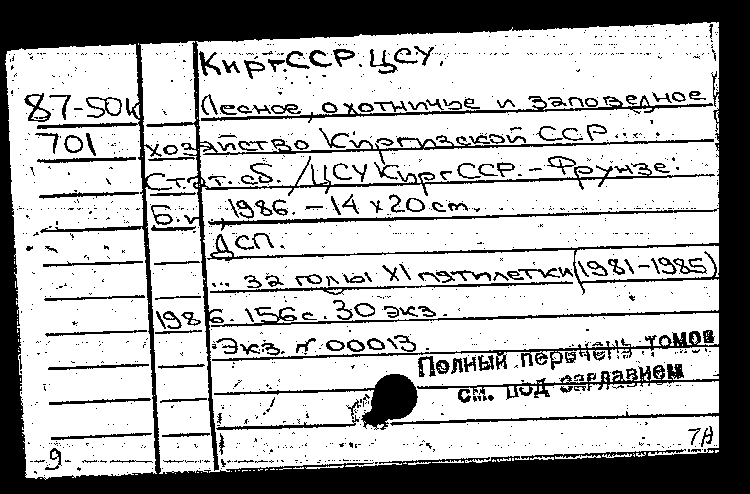 КиргССР. ЦСУ.
87-50к Лесное, охотничье и заповедное
701 хозяйство Киргизской ССР ... :
Стат. сб. / ЦСУ КиргССР. - Фрунзе:
Б.и., 1986. - 14 х 20 см.
ДСП.
... за годы XI пятилетки (1981-1985)
1986. 156 с. 30 экз.
Экз. № 00013.
Полный перечень томов
см. под заглавием
9 7А